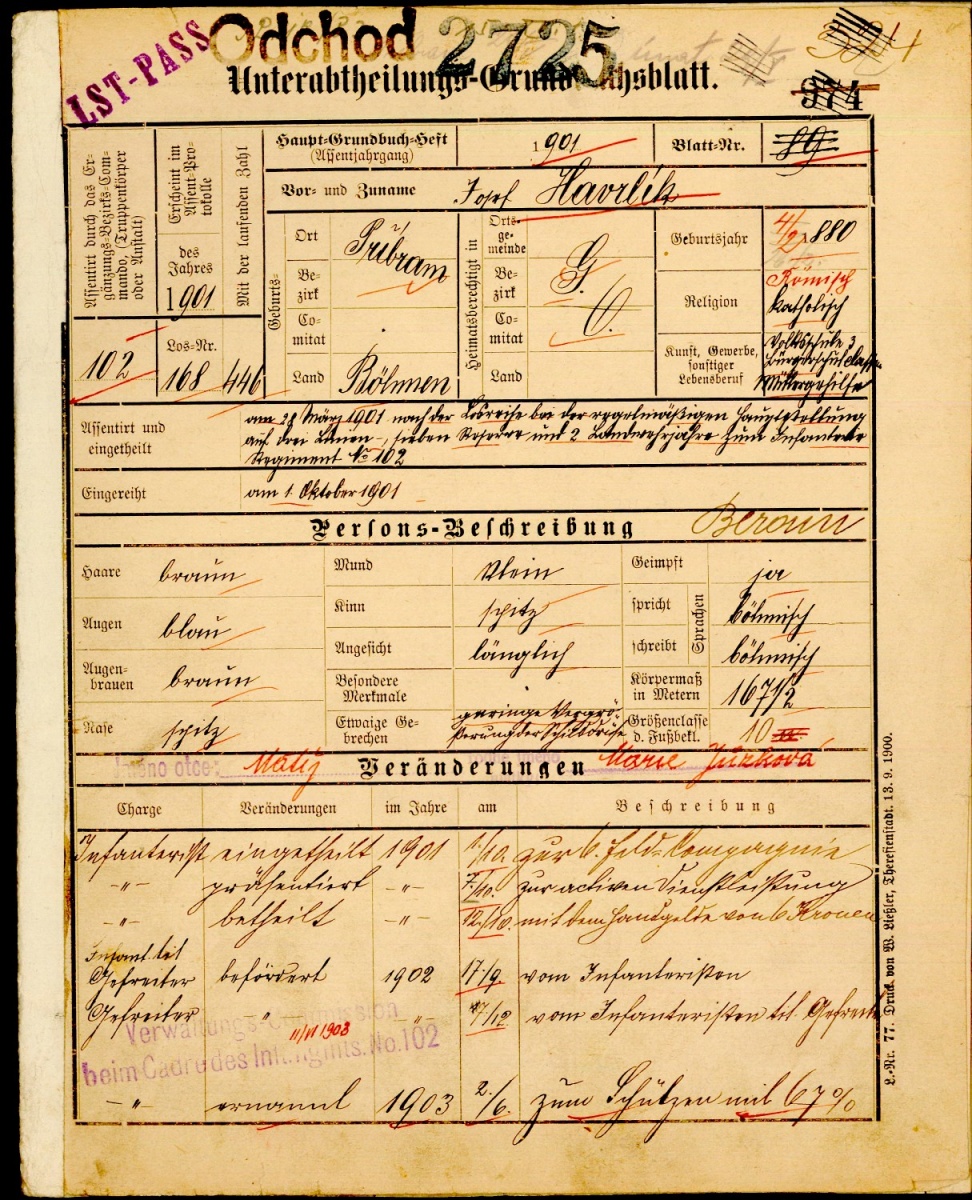 LST-PASS
Odchod 2725
Unterabtheilungs-Grundbuchsblatt.
374
Assentirt durch das Ergänzungs-Bezirks-Commando, (Truppenkörper oder Anstalt)
102
Erscheint im Assent-Protokolle
des Jahres
1901
Los-Nr.
168
Mit der laufenden Zahl
446
Haupt-Grundbuch-Heft (Assentjahrgang)
1901
Blatt-Nr.
89
Vor- und Zuname
Josef Havrlík
Geburts-
Ort
Přibram
Bezirk
Comitat
Land
Böhmen
Heimatsberechtigt in
Ortsgemeinde
Bezirk
G.
Comitat
O.
Land
Geburtsjahr
4/2 1880
Religion
Römisch
katholisch
Kunst, Gewerbe, sonstiger Lebensberuf
Volksschule 3
Bürgerschulclassen
Müllergehilfe
Assentirt und eingetheilt
am 28 März 1901 nach der Losreihe bei der regelmäßigen Hauptstellung
auf drei Linien-, sieben Reserve und 2 Landwehrjahre zum Infanterie
Regiment No 102
Eingereiht
am 1. Oktober 1901
Persons-Beschreibung
Beraun
Haare
braun
Mund
klein
Geimpft
ja
Augen
blau
Kinn
spitz
spricht
Sprachen
böhmisch
Angesicht
länglich
schreibt
böhmisch
Augenbrauen
braun
Besondere Merkmale
Körpermaß in Metern
167 1/2
Nase
spitz
Etwaige Gebrechen
geringe Vergrößerung der Schilddrüse
Größenclasse d. Fußbekl.
10
Jméno otce:
Matěj
Veränderungen
Marie Jurková
Charge
Veränderungen
im Jahre
am
Beschreibung
Infanterist eingetheilt 1901 1/10. zur 6. Feld-Compagnie
-"- präsentiert -"- 7/10. zur activen Dienstleistung
-"- betheilt -"- 12/10. mit dem Handgelde von 6 Kronen
Infant. tit
Gefreiter befördert 1902 17/9. vom Infanteristen
Gefreiter " " 17/12. vom Infanteristen tit. Gefreiter
Verwaltungs-Commission
11/VI 1903
beim Cadre des Inf. Rgmts. No. 102
-"- ernannt 1903 2/6. zum Schützen mit 67%
L.-Nr. 77. Druck von W. Ließler, Theresienstadt. 13. 9. 1900.